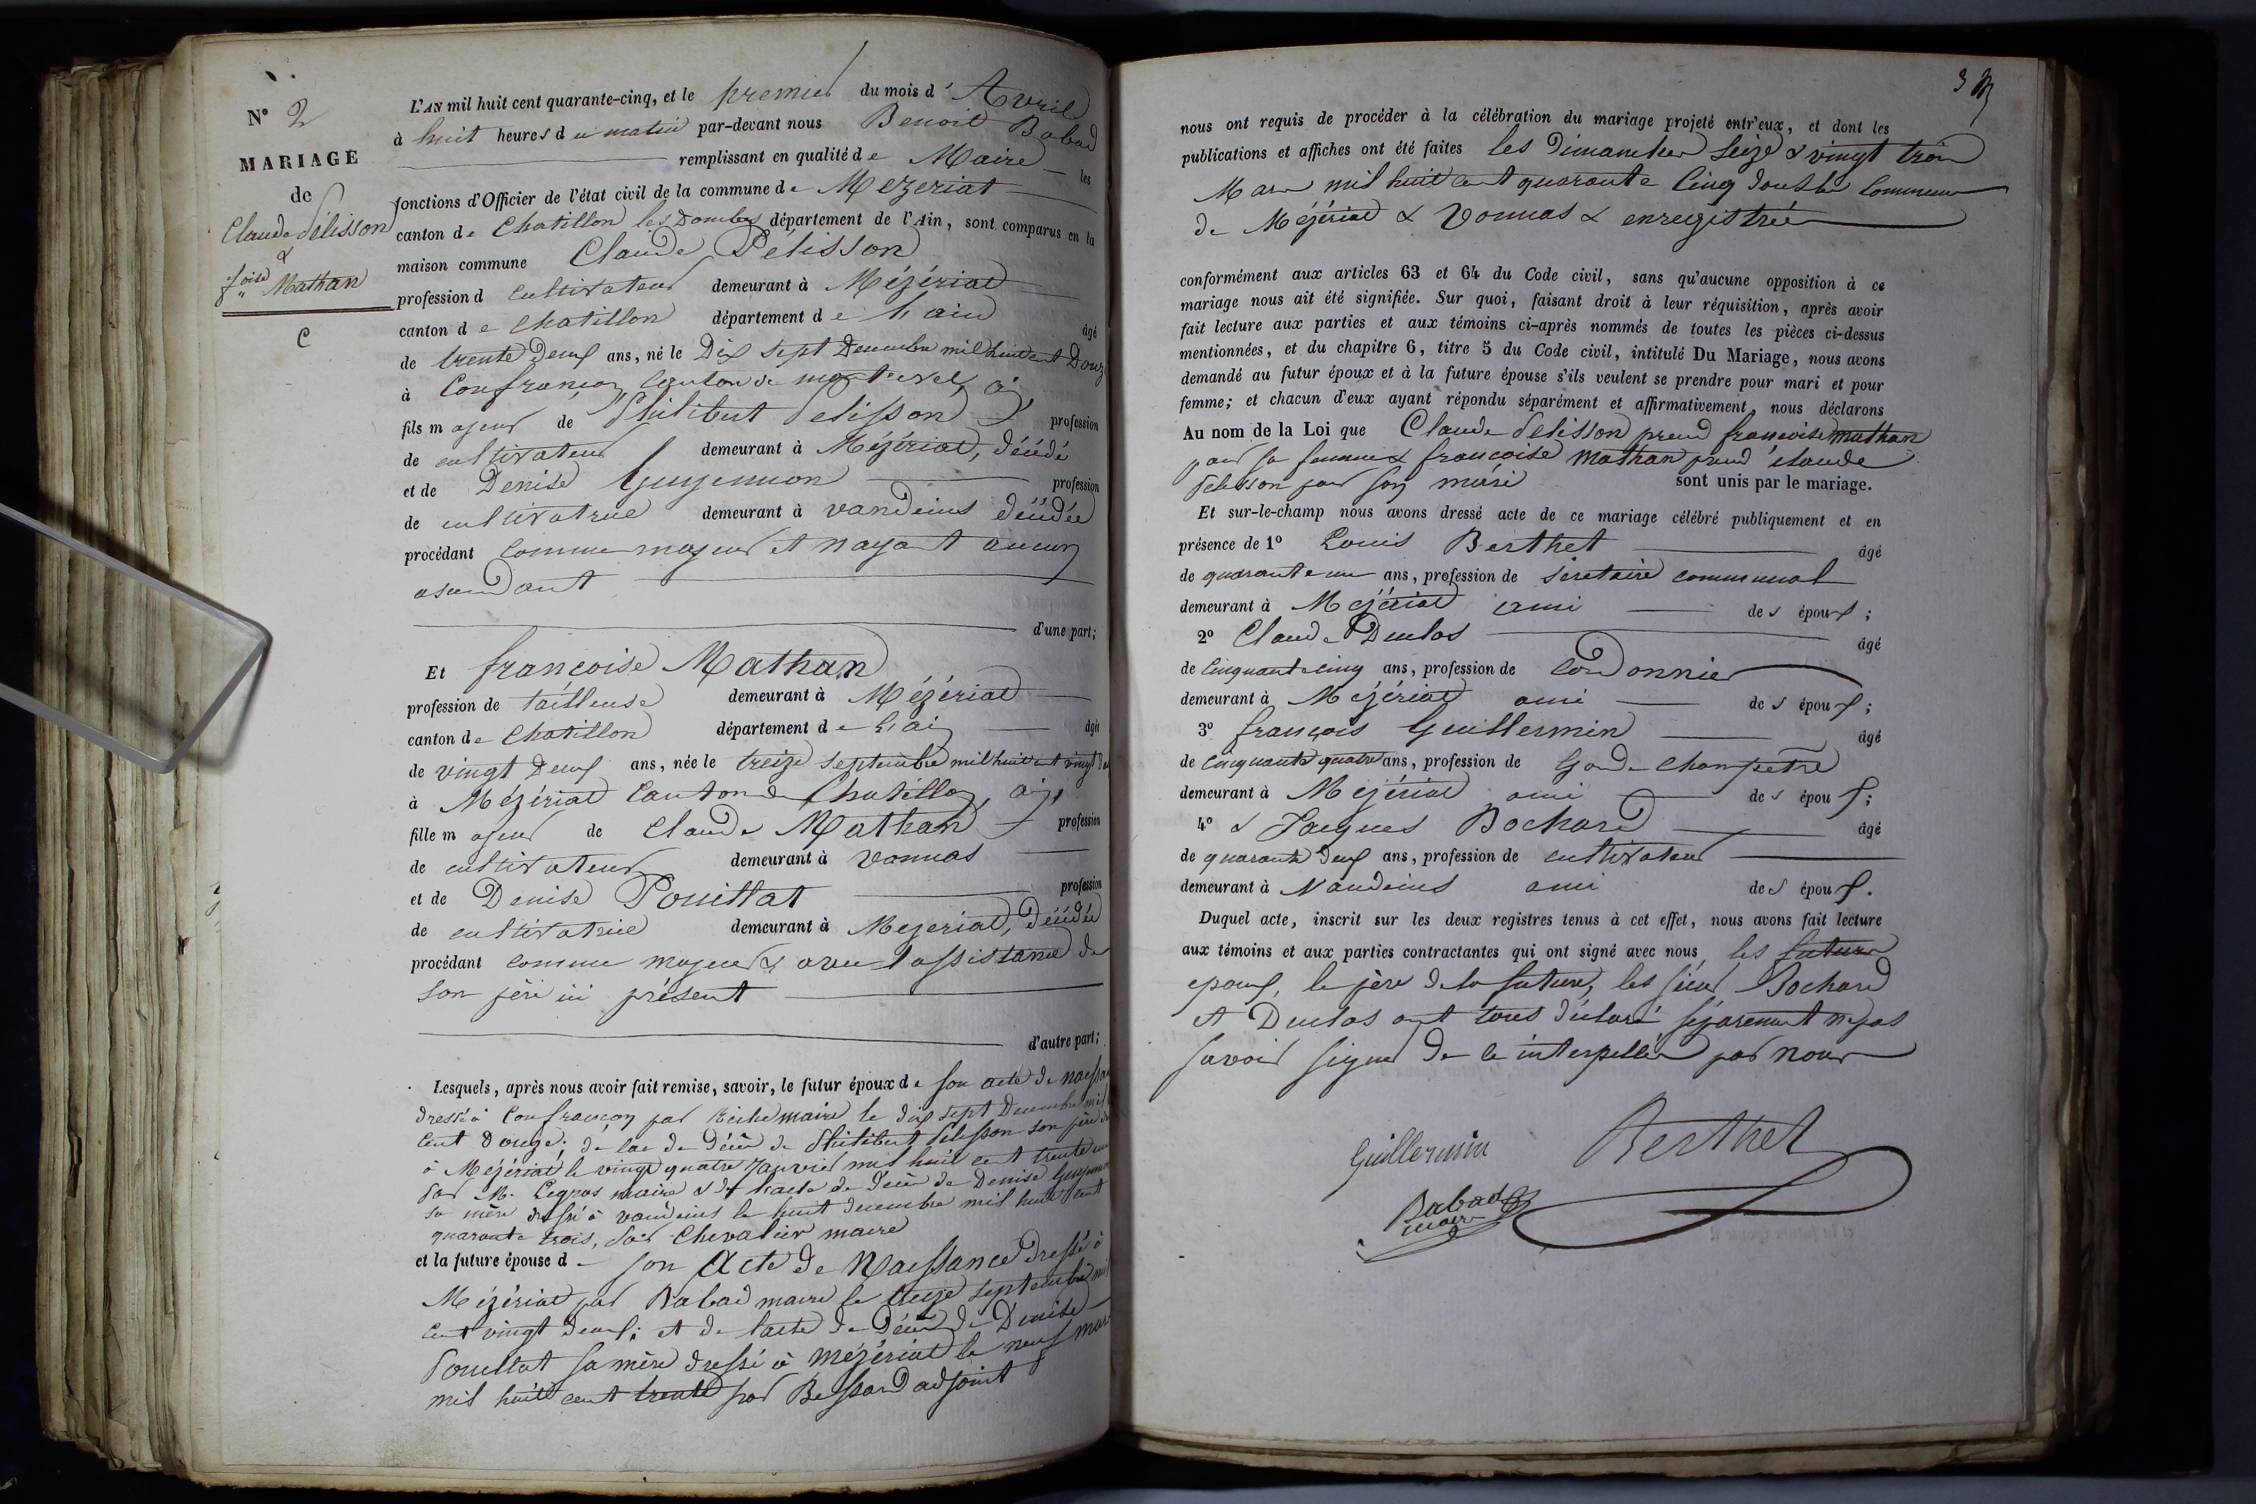 N° 2
MARIAGE
de
Claude Pélisson
&
foise Mathan
C
L'AN mil huit cent quarante-cinq, et le premier du mois d'Avril
à huit heures du matin par-devant nous Benoit Babad
remplissant en qualité de Maire les
fonctions d'Officier de l'état civil de la commune de Mezeriat
canton de Chatillon les Dombes département de l'Ain, sont comparus en la
maison commune Claude Pelisson
profession d cultivateur demeurant à Mézériat
canton de Chatillon département de l'ain âgé
de trente deux ans, né le Dix sept Decembre mil huit cent Douze
à Confrançon, Canton de montrevel, ain,
fils majeur de Philibert Pelisson profession
de cultivateur demeurant à Mézériat, décédé
et de Denise Guyennon profession
de cultivatrice demeurant à vandeins décédée
procédant comme majeur et nayant aucun
asendant
d'une part;
Et françoise Mathan
profession de tailleuse demeurant à Mézériat
canton de Chatillon département de l'ain âgée
de vingt deux ans, née le treize septembre mil huit cent vingt deux
à Mézériat Canton de Chatillon, ain,
fille majeur de Claude Mathan profession
de cultivateur demeurant à vonnas
et de Denise Pouillat profession
de cultivatrice demeurant à Mezeriat, décédée
procédant comme majeur & avec l'assistance de
son père ici présent
d'autre part;
Lesquels, après nous avoir fait remise, savoir, le futur époux de son acte de naissa
dressé à Confrançon par maire le dix sept Decembre mil
cent douze; de lac de décè de Philibert Pelisson son père
à Mézériat le vingt quatre Janvier mil huit cent trente
par M. Legros maire & de l'acte de décè de Denise Guyennon
sa mère dressé à vandeins le huit decembre mil huit cent
quarante trois, par Chevalier maire
et la future épouse d son Acte de Naissance dressé à
Mézériat par Babad maire le treize septembre mil
cent vingt deux; et de l'acte de décè de Denise
Pouillat sa mère dressé à mézériat le neuf mars
mil huit cent trente par Bessard adjoint
3
nous ont requis de procéder à la célébration du mariage projeté entr'eux, et dont les
publications et affiches ont été faites les Dimanches Seize & vingt trois
Mars mil huit cent quarante Cinq dans les Communes
de Mézériat & Vonnas & enregistrée
conformément aux articles 63 et 64 du Code civil, sans qu'aucune opposition à ce
mariage nous ait été signifiée. Sur quoi, faisant droit à leur réquisition, après avoir
fait lecture aux parties et aux témoins ci-après nommés de toutes les pièces ci-dessus
mentionnées, et du chapitre 6, titre 5 du Code civil, intitulé Du Mariage, nous avons
demandé au futur époux et à la future épouse s'ils veulent se prendre pour mari et pour
femme; et chacun d'eux ayant répondu séparément et affirmativement, nous déclarons
Au nom de la Loi que Claude Pelisson prend françoise mathan
pour sa femme & françoise Mathan prend Claude
Pelisson pour son mari sont unis par le mariage.
Et sur-le-champ nous avons dressé acte de ce mariage célébré publiquement et en
présence de 1° Louis Berthet âgé
de quarante un ans, profession de sécretaire communal
demeurant à Mézériat ami des époux;
2° Claude Duclos âgé
de Cinquante cinq ans, profession de Cordonnier
demeurant à Mézériat ami des époux;
3° françois Guillermin âgé
de Cinquante quatre ans, profession de Garde Champetre
demeurant à Mézériat ami des époux;
4° & Jacques Bochard âgé
de quarante deux ans, profession de cultivateur
demeurant à Vandeins ami des époux.
Duquel acte, inscrit sur les deux registres tenus à cet effet, nous avons fait lecture
aux témoins et aux parties contractantes qui ont signé avec nous, les futurs
epoux, le père de la future, les sieur Bochard
et Duclos ont tous déclaré séparement ne pas
savoir signer de ce interpellés par nous
Guillermin Berthet
Babad
maire